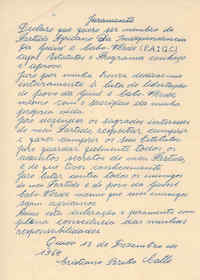 Juramento
Declaro que quero ser membro do
Partido Africano da Independência
da Guiné e Cabo Verde (P.A.I.G.C.)
cujos Estatutos e Programa conheço
e aprovo.
Juro por minha honra dedicar-me
inteiramente à luta de libertação
do povo da Guiné e Cabo Verde,
mesmo com o sacrifício da minha
própria vida.
Juro defender os sagrados interesses
do meu Partido, respeitar, cumprir
e fazer cumprir os seus Estatutos.
Juro guardar fielmente todos os
segredos do meu Partido,
de que tiver conhecimento.
Juro lutar contra todos os inimigos
do meu Partido e do povo da Guiné e
Cabo Verde mesmo que esses inimigos
sejam africanos.
Faço esta declaração e juramento com
plena consciência das minhas
responsabilidades.
13 de Dezembro de
196
Cristiano